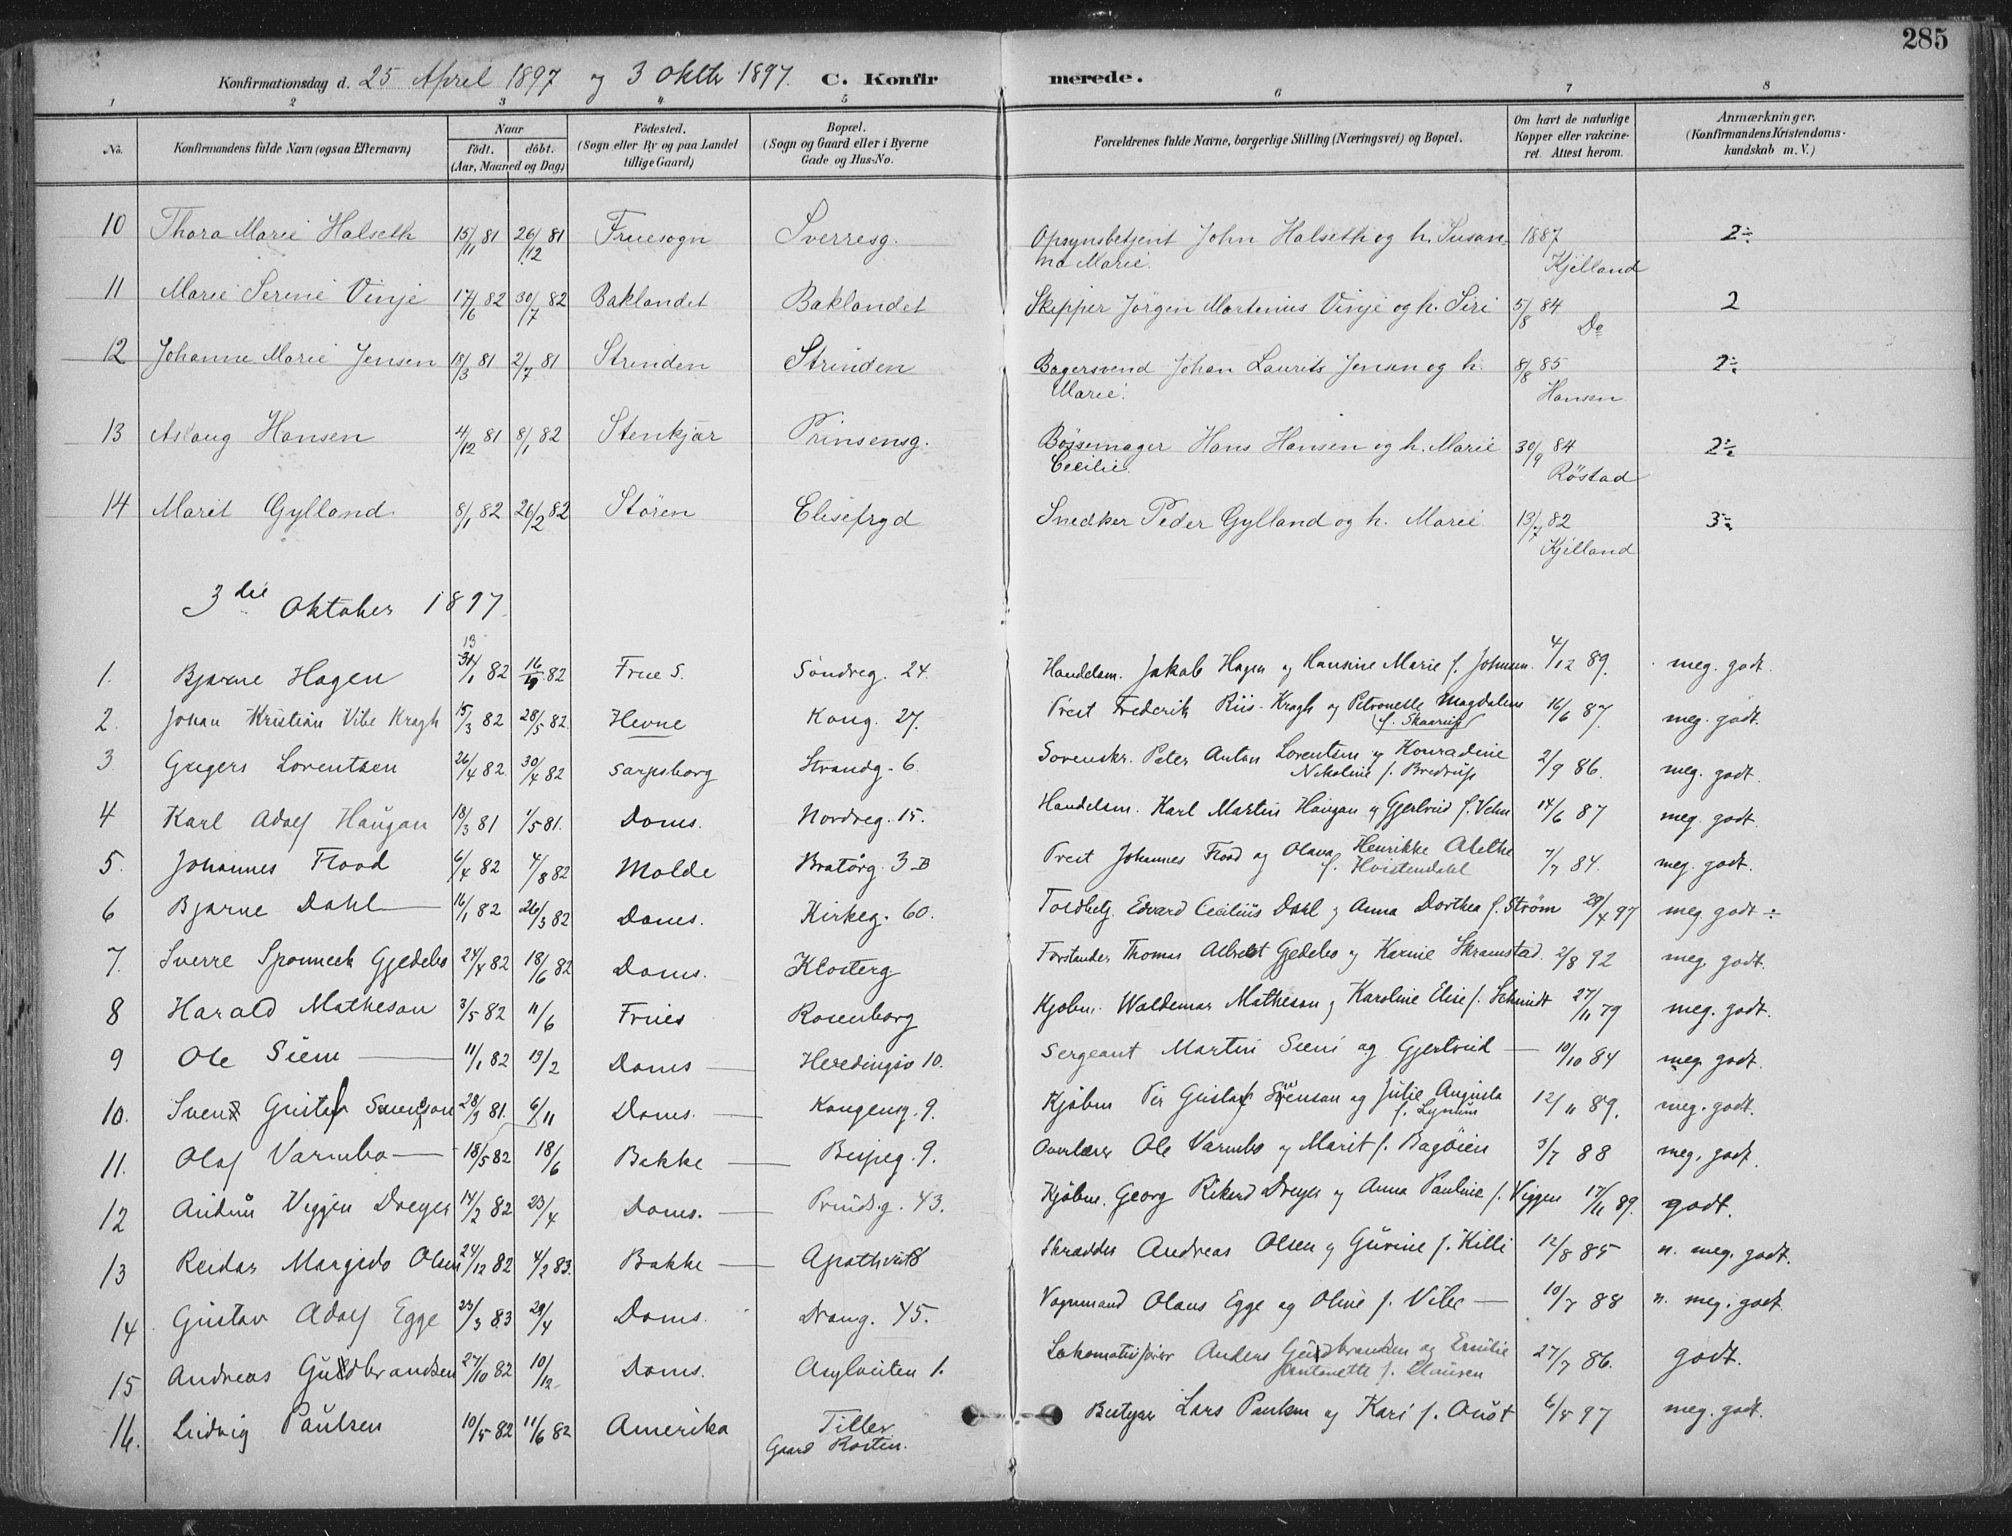 285
Konfirmationsdag d. 25 April 1897 og 3 Oktbr 1897. C. Konfir merede.
1 2 3 4 5 6 7 8
No. Konfirmandens fulde Navn (ogsaa Efternavn) Naar født. døbt. (Aar, Maaned og Dag) Fødested. (Sogn eller By og paa Landet tillige Gaard) Bopæl. (Sogn og Gaard eller i Byerne Gade og Hus-No. Forældrenes fulde Navne, borgerlige Stilling (Næringsvei) og Bopæl. Om havt de naturlige Kopper eller vakcineret. Attest herom. Anmærkninger. (Konfirmandens Kristendomskundskab m. V.)
10 Thora Marie Halseth 15/11 81 26/12 81 Fruesogn Sverresg. Opsynsbetjent John Halseth og h. Susan- 1887 2÷
na Marie. Kjelland
11 Marie Serine Vinje 17/6 82 30/7 82 Baklandet Baklandet Skipper Jørgen Martenius Vinje og h. Siri 5/8 84 2
Do
12 Johanne Marie Jensen 18/3 81 2/7 81 Strinden Strinden Bagersvend Johan Laurits Jensen og h. 8/8 85 2÷
Marie. Hansen
13 Aslaug Hansen 4/12 81 8/1 82 Stenkjær Prinsensg. Bøssemager Hans Hansen og h. Marie 30/9 84 2÷
Cecilie. Røstad
14 Marit Gylland 8/1 82 26/2 82 Støren Elisefryd Snedker Peder Gylland og h. Marie 13/7 82 3÷
Kjelland
3die Oktober 1897.
13
1. Bjarne Hagen 31/1 82 82 Frue S. Søndreg. 24. Handelsm. Jakob Hagen og Hansine Marie f. Johnsen. 4/12 89. meg. godt.
2. Johan Kristian Vibe Kragh 15/3 82 28/5 82. Hevne Kong. 27. Prest Frederik Riis-Kragh og Petronelle Magdalene 16/6 87. meg. godt.
f. Skaarup
3 Gregers Lorentzen 26/4 82. 30/4 82 Sarpsborg Strandg. 6. Sorenskr. Peter Anton Lorentzen og Konradine 2/9 86. meg. godt.
Nikoline f. Bredrup
4 Karl Adolf Haugan 18/3 81 1/5 81. Doms. Nordreg. 15. Handelsm. Karl Martin Haugan og Gjertrud f. Velve 14/6 87 meg. godt.
5. Johannes Flood 6/4 82 4/8 82 Molde Bratørg. 3 B Prest Johannes Flood og Olava Henrikke Alethe 7/7 84. meg. godt.
f. Hvistendahl
6 Bjarne Dahl 16/1 82 26/3 82 Doms. Kirkeg. 60. Toldbetj. Edvard Cecilius Dahl og Anna Dorthea f. Strøm 29/4 97 meg. godt ÷
7. Sverre Sponneck Gjedebo 24/4 82 18/6 82 Doms. Klosterg Forstander Thomas Albert Gjedebo og Karine Skramstad. 2/8 92 meg. godt.
8 Harald Matheson 3/5 82 11/6 Frues Rosenborg Kjøbm. Waldemar Matheson og Karoline Elise f. Schmidt 27/11 79 meg. godt.
9 Ole Siem 11/1 82 19/2 Doms Sergeant Martin Siem og Gjertrud 10/10 84 meg. godt
10. Sven Gustaf Svenson 28/9 81. 6/11 Doms. Kongensg. 9. Kjøbm Per Gustaf Svenson og Julie Augusta 12/11 89. meg. godt.
f. Lynum
11. Olaf Varmbo 18/5 82 18/6 Bakke Bispeg. 9. Overlærer Ole Varmbo og Marit f. Bagøien 3/7 88 meg. godt.
12 Viggen Dreyer 14/2 82 23/4 Doms. Prinds.g. 43. Kjøbm. Georg Rikard Dreyer og Anna Pauline f. Viggen 17/11 89. godt.
13 Reidar Margido Olsen 24/12 82 4/2 83. Bakke Skrædder Andreas Olsen og Gurine f. Killi 12/8 85 n. meg. godt.
14. Gustav Adolf Egge 23/3 83 29/4 Doms. 45. Vognmand Olaus Egge og Oline f. Vibe 10/7 88 n. meg. godt
15 Andreas Guldbrandsen 27/10 82 10/12 Doms. Asylveiten 1. Lokomotivfører Anders Guldbrandsen og Emilie 27/7 86. godt.
Antonette f. Clausen
16. Ludvig Paulsen 10/5 82 11/6 82 Amerika Tiller Bestyrer Lars Paulsen og Kari f. Aust 6/5 97 meg. godt.
Gaard Rosten.